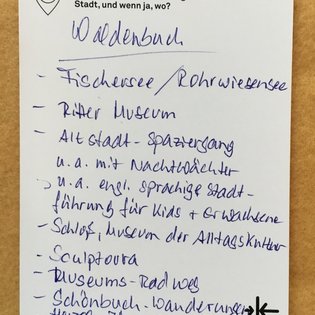 Stadt, und wenn ja, wo?
Waldenbuch
- Fischersee / Rohrwiesensee
- Ritter Museum
- Altstadt-Spaziergang
u.a. mit Nachtwächter
u.a. engl. sprachige Stadt-
führung für Kids + Erwachsene
- Schloß, Museum der Alltagskultur
- Sculptoura
- Museums-Radweg
- Schönbuch-Wanderungen